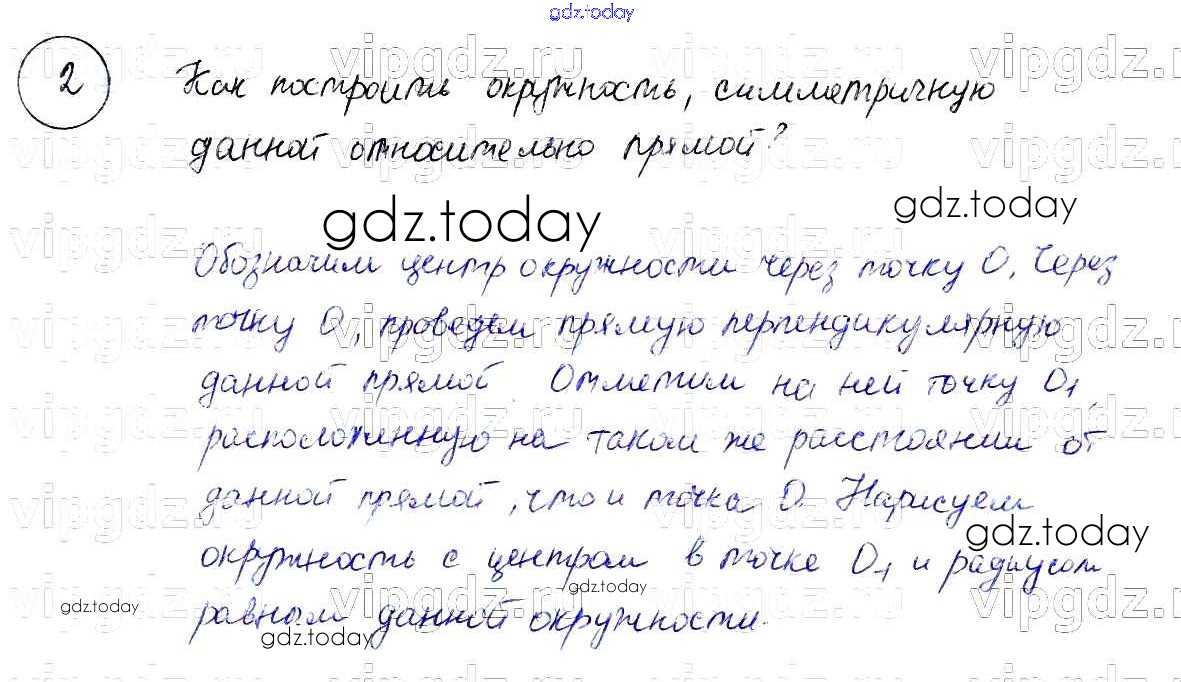 gdz.today
2 Как построить окружность, симметричную
данной относительно прямой?
gdz.today gdz.today
Обозначим центр окружности через точку О. Через
точку О, проведем прямую перпендикулярную
данной прямой Отметим на ней точку О1,
расположенную на таком же расстоянии от
данной прямой, что и точка О. Нарисуем
gdz.today
окружность с центром в точке О1 и радиусом
gdz.today gdz.today
равным данной окружности.
gdz.today